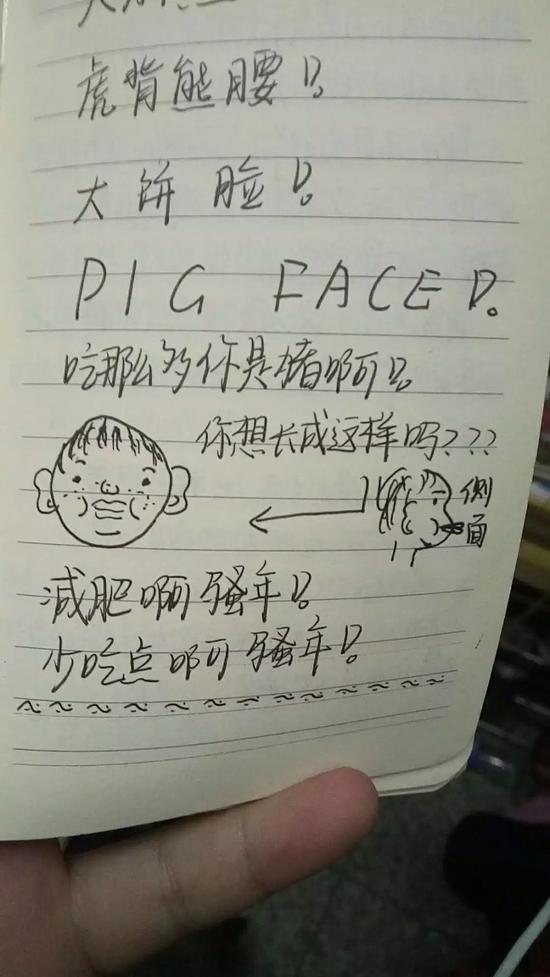 虎背熊腰！
大饼脸！
PIG FACE！
吃那么多你是猪啊！
你想长成这样吗？？？
侧面
减肥啊骚年！
少吃点啊骚年！